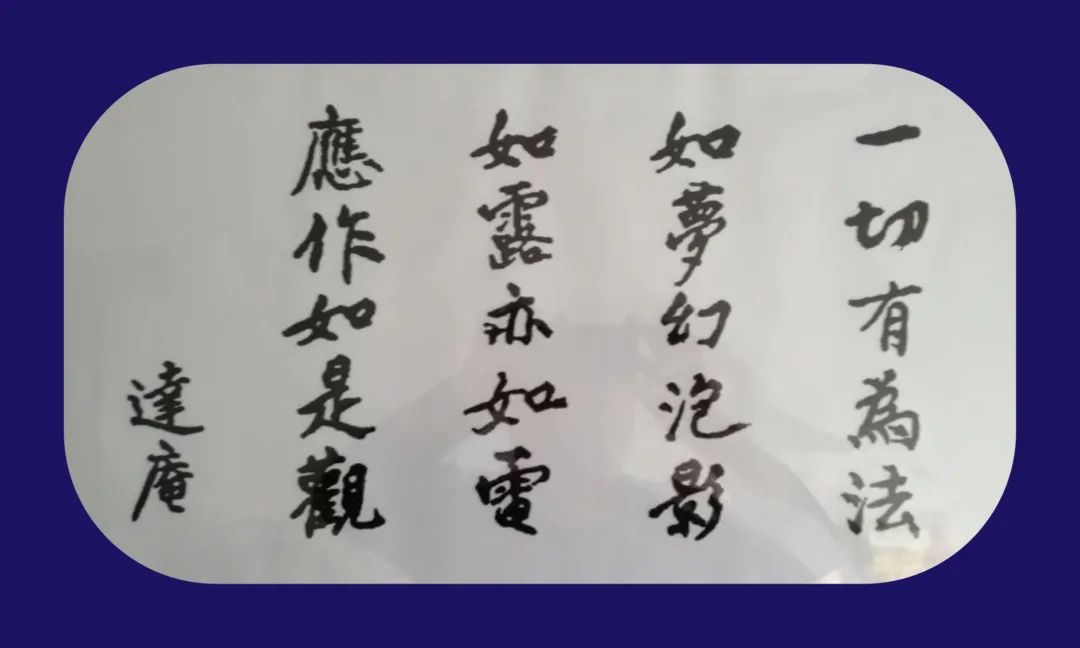 一切有為法
如夢幻泡影
如露亦如電
應作如是觀
達庵